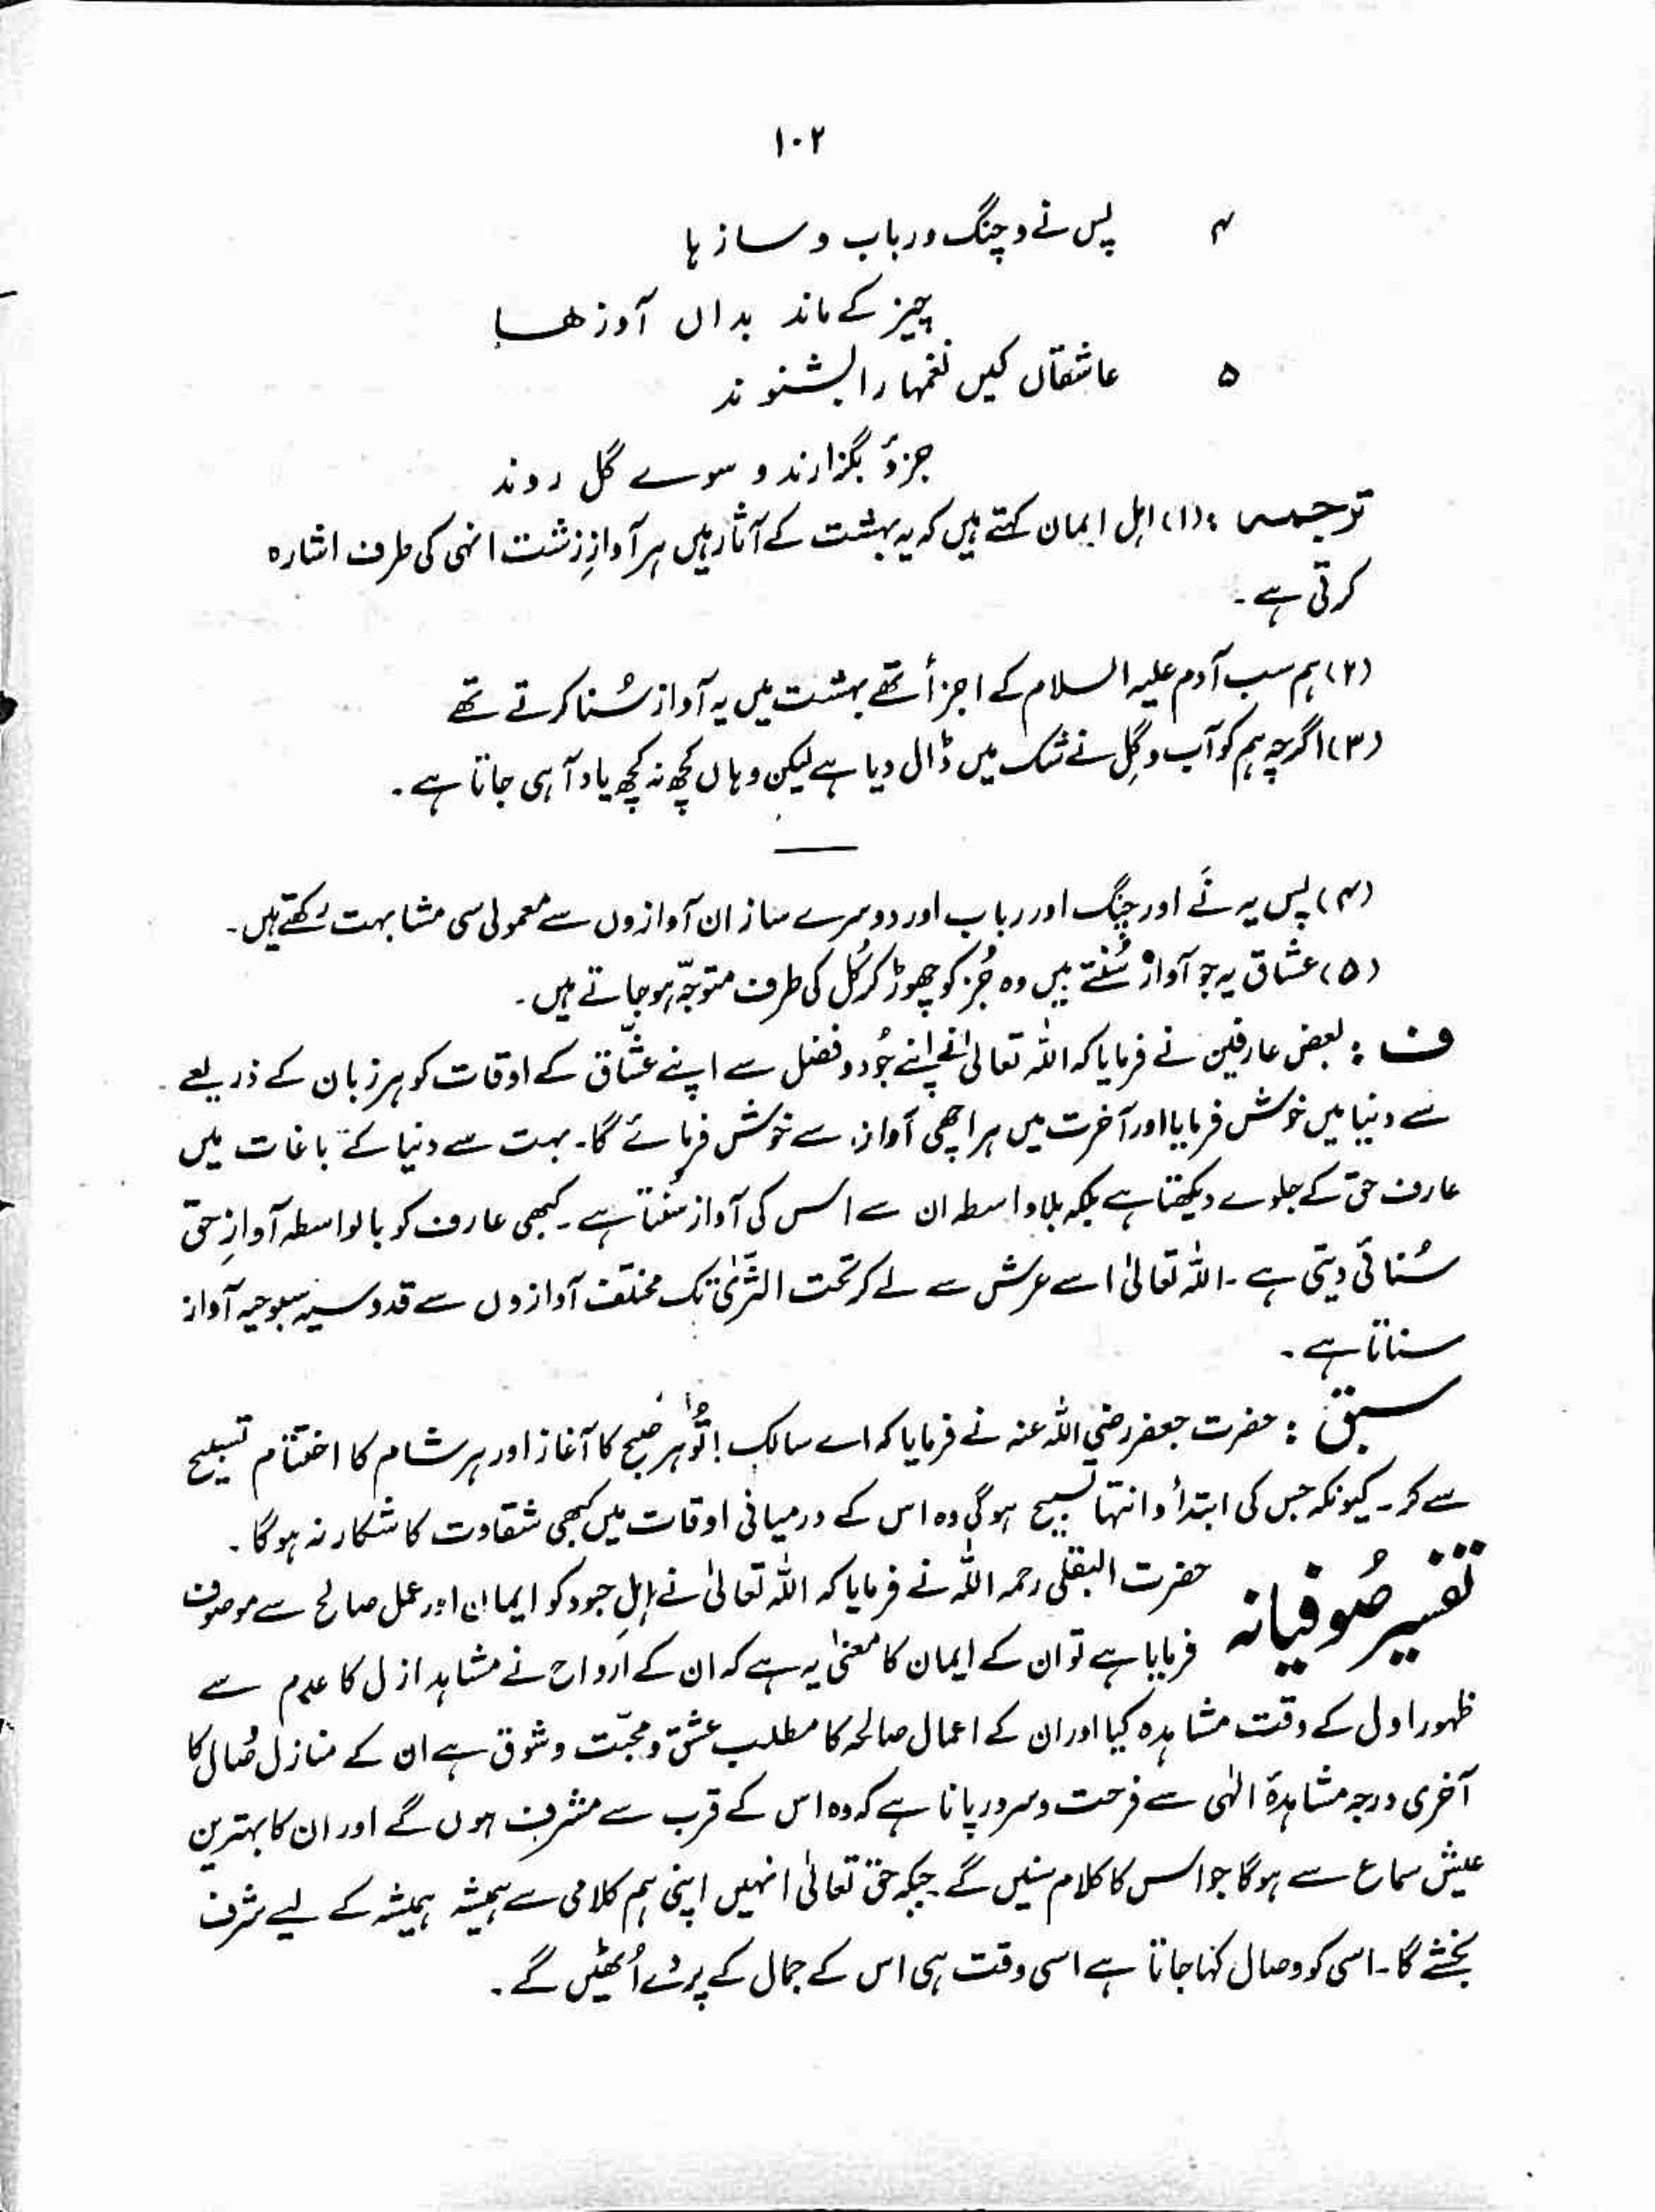 ۱۰۲
۴ پس نے و چنگ و رباب و ساز ہا
چیز کے ماند بداں آوز ھا
۵ عاشقاں کیں نغمہا را بشنوند
جزؤ بگزارند و سوے گل روند
ترجمہ: (۱) اہل ایمان کہتے ہیں کہ یہ بہشت کے آثار ہیں ہر آوازِ زشت انہی کی طرف اشارہ
کرتی ہے۔
(۲) ہم سب آدم علیہ السلام کے اجزأ تھے بہشت میں یہ آواز سُنا کرتے تھے
(۳) اگرچہ ہم کو آب و گِل نے شک میں ڈال دیا ہے لیکن وہاں کچھ نہ کچھ یاد آ ہی جاتا ہے۔
(۴) پس یہ نَے اور چنگ اور رباب اور دوسرے ساز ان آوازوں سے معمولی سی مشابہت رکھتے ہیں۔
(۵) عشاق یہ جو آواز سُنتے ہیں وہ جُز کو چھوڑ کر کُل کی طرف متوجّہ ہو جاتے ہیں۔
ف: بعض عارفین نے فرمایا کہ اللہ تعالیٰ نے اپنے جُود و فضل سے اپنے عشّاق کے اوقات کو ہر زبان کے ذریعے
سے دنیا میں خوش فرمایا اور آخرت میں ہر اچھی آواز سے خوش فرمائے گا۔ بہت سے دنیا کے باغات میں
عارف حق کے جلوے دیکھتا ہے بلکہ بلا واسطہ ان سے اس کی آواز سُنتا ہے۔ کبھی عارف کو بالواسطہ آوازِ حق
سُنائی دیتی ہے۔ اللہ تعالیٰ اسے عرش سے لے کر تحت الثریٰ تک مختلف آوازوں سے قدوسیہ سبوحیہ آواز
سناتا ہے۔
سبق: حضرت جعفر رضی اللہ عنہ نے فرمایا کہ اے سالک! تُو ہر صُبح کا آغاز اور ہر شام کا اختتام تسبیح
سے کر۔ کیونکہ جس کی ابتدأ و انتہا تسبیح ہو گی وہ اس کے درمیانی اوقات میں کبھی شقاوت کا شکار نہ ہوگا۔
تفسیر صُوفیانہ حضرت البقلی رحمہ اللہ نے فرمایا کہ اللہ تعالیٰ نے اہلِ جود کو ایمان اور عمل صالح سے موصوف
فرمایا ہے تو ان کے ایمان کا معنیٰ یہ ہے کہ ان کے ارواح نے مشاہد ازل کا عدم سے
ظہور اول کے وقت مشاہدہ کیا اور ان کے اعمال صالحہ کا مطلب عشق و محبّت و شوق ہے ان کے منازل وصُال کا
آخری درجہ مشاہدۂ الٰہی سے فرحت و سرور پانا ہے کہ وہ اس کے قرب سے مشرف ہوں گے اور ان کا بہترین
عیش سماع سے ہوگا جو اس کا کلام سنیں گے جبکہ حق تعالیٰ انہیں اپنی ہم کلامی سے ہمیشہ ہمیشہ کے لیے شرف
بخشے گا۔ اسی کو وصال کہا جاتا ہے اسی وقت ہی اس کے جمال کے پردے اُٹھیں گے۔